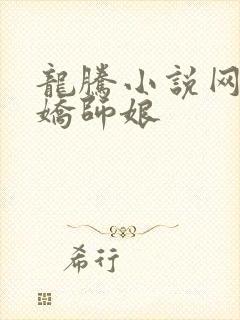 龍騰小説网
嬌師娘
希行